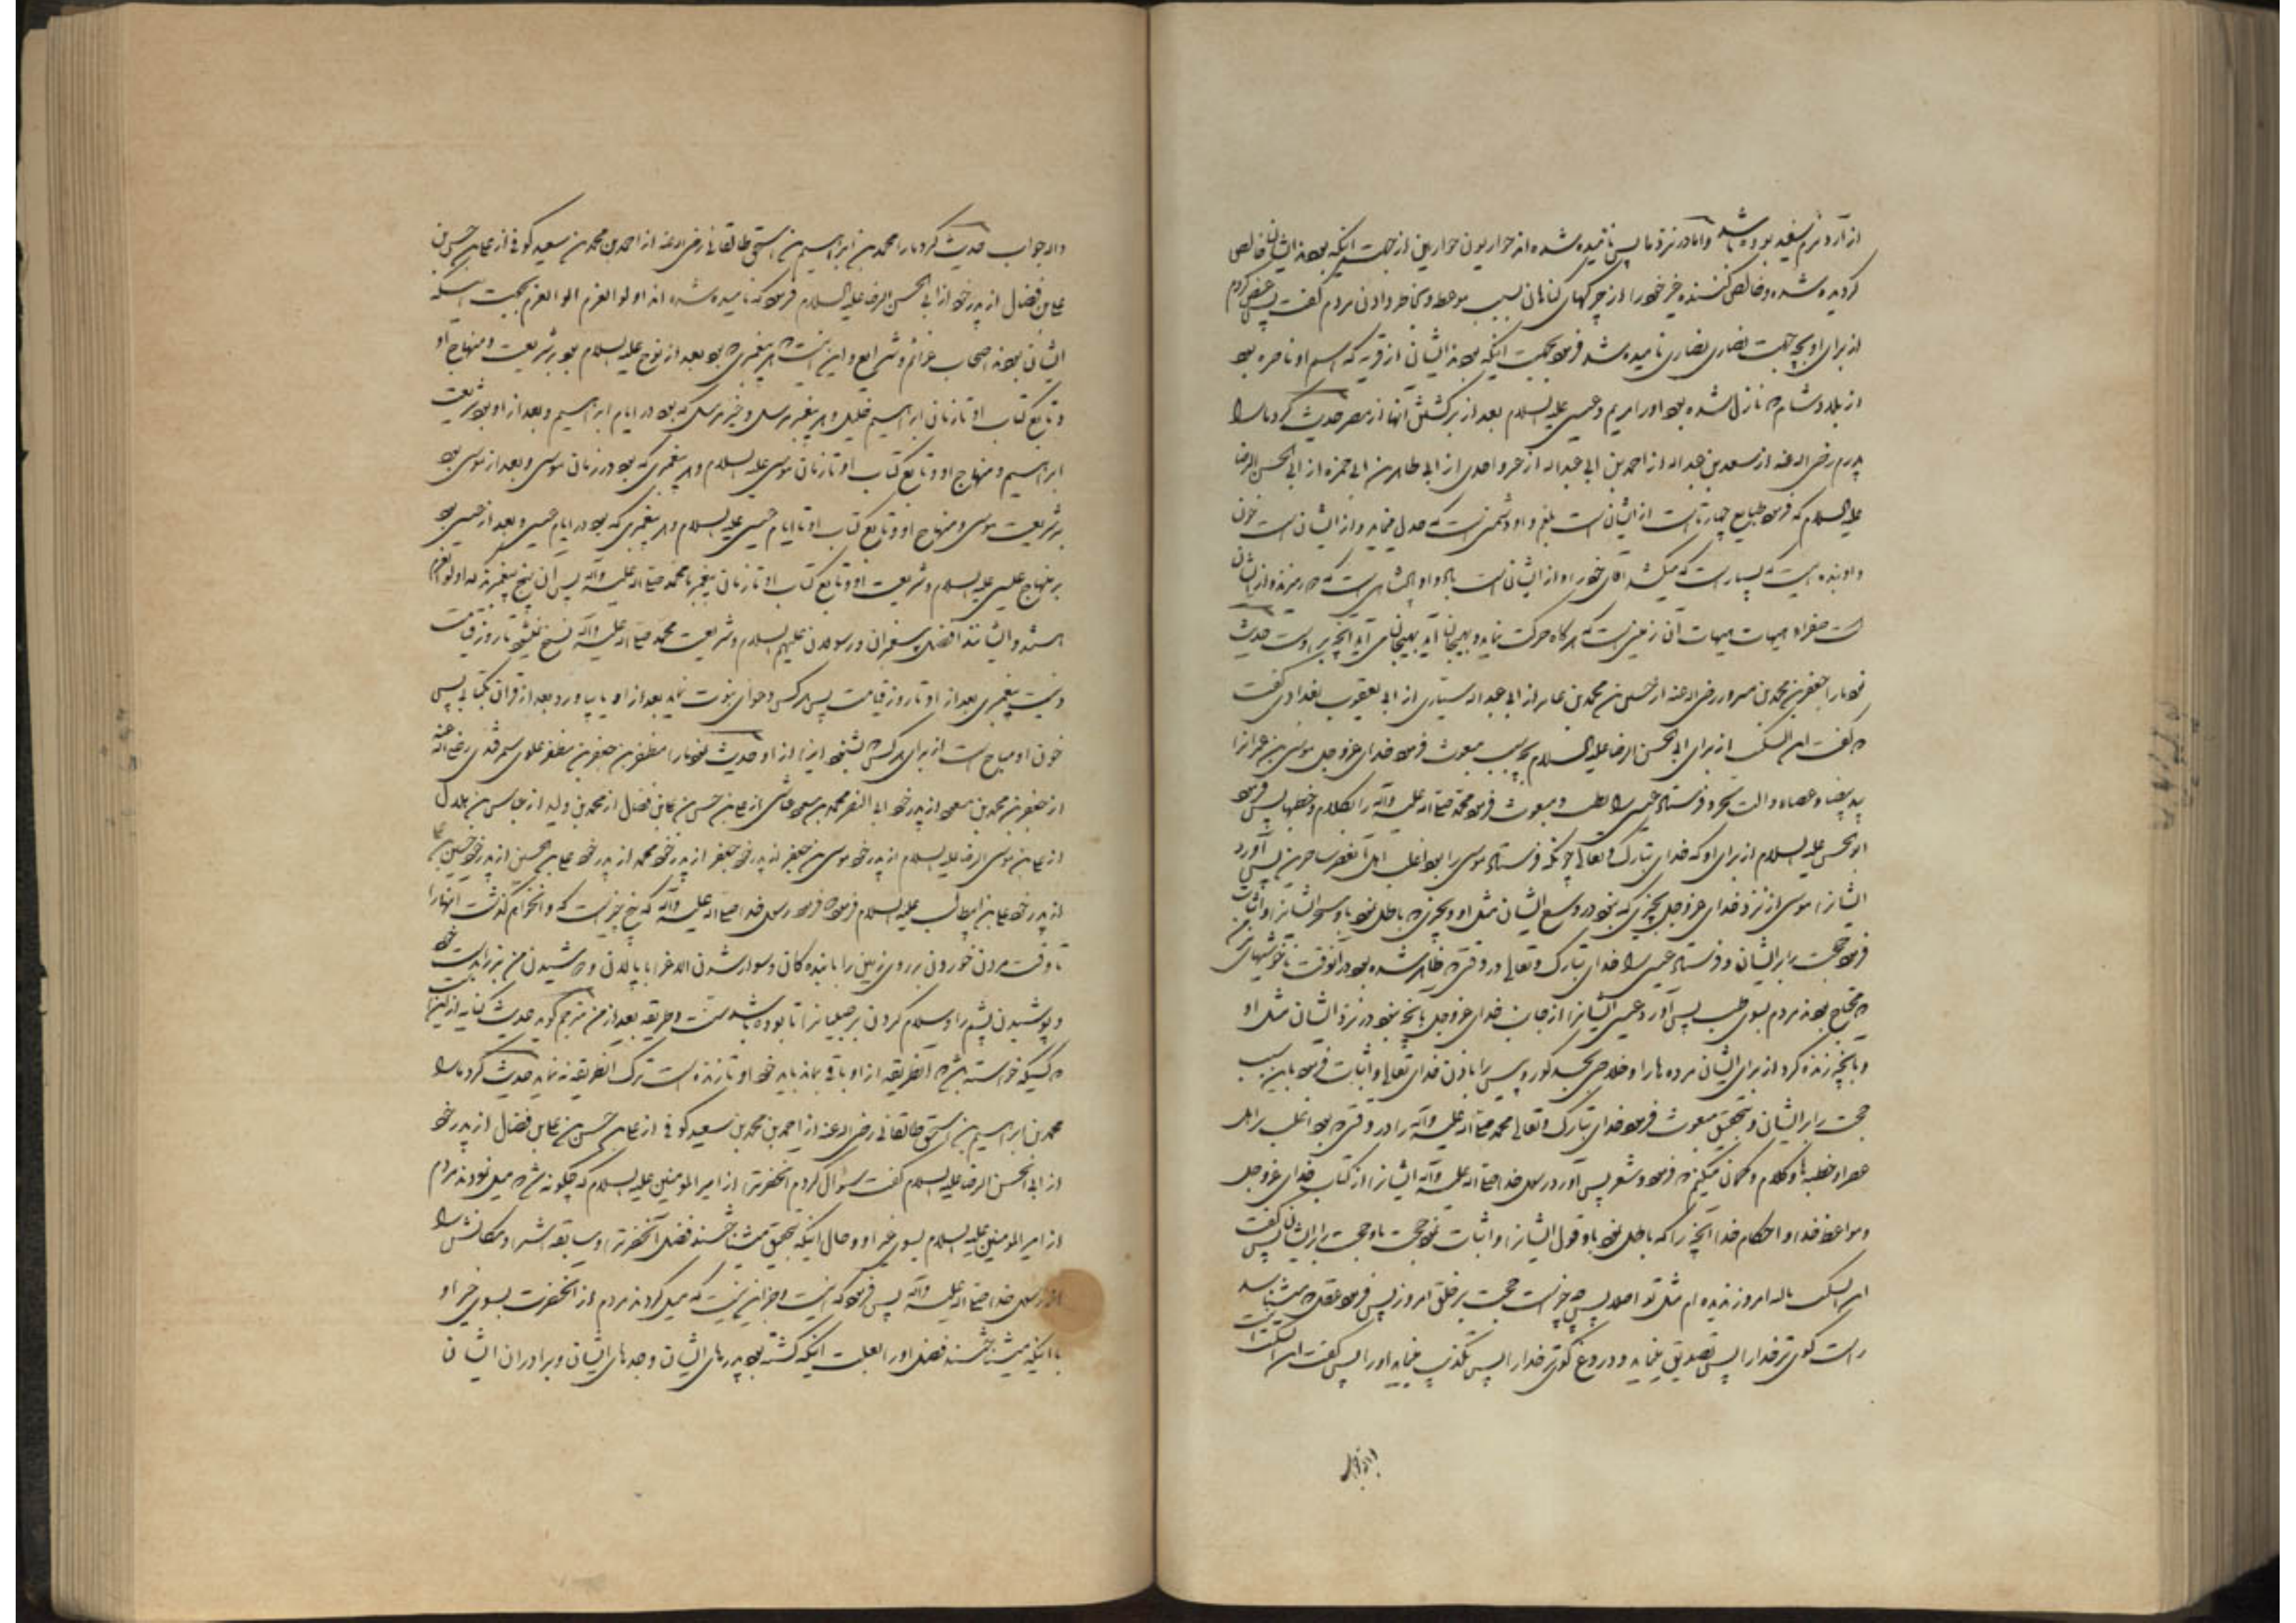 از آرد نرم سفید بوده باشد و اما در نزد ما پس نامیده شده اند حواریون حواریون از جهت اینکه بودند ایشان خالص
کردیده شده و خالص کننده غیر خود را از چرکهای کناهان بسبب موعظه و بخاطر دادن مردم کفت پس عرض کردم
از برای او بچه جهت نصاری نصاری نامیده شد فرمود بجهت اینکه بودند ایشان از قریه که اسم او ناصره بود
از بلاد شام که نازل شده بود او را مریم و عیسی علیه السلام بعد از برکشتن آنها از مصر حدیث کرد ما را
پدرم رضی الله عنه از سعد بن عبد الله از احمد بن ابی عبد الله از غیر واحدی از ابی طاهر بن ابی حمزه از ابی الحسن الرضا
علیه السلام که فرمود طبایع چهارتاست از ایشانست بلغم و او دشمنی است که جدل مینماید و از ایشان است خون
و او بنده ایست که بسیار است که میکشد آقای خود را و از ایشانست باد و او پادشاهی است که مدارا و از ایشان
است صفرا و هیهات هیهات آن زمینی است که هر کاه حرکت نماید و بهیجان آید بهیجان می آید آنچه بر اوست حدیث
نمود ما را جعفر بن محمد بن مسرور رضی الله عنه از حسین بن محمد بن عامر از ابی عبد الله سیاری از ابی یعقوب بغدادی کفت
که کفت ابن السکیت از برای ابی الحسن الرضا علیه السلام بچه سبب مبعوث فرمود خدای عز و جل موسی بن عمران را
بید بیضا و عصا و آلت سحر و فرستاد عیسی را بطب و مبعوث فرمود محمد صلی الله علیه و آله را بکلام و خطبها پس فرمود
ابو الحسن علیه السلام از برای او که خدای تبارک و تعالی چونکه فرستاد موسی را بود اغلب اهل آنعصر ساحرین پس آورد
ایشانرا موسی از نزد خدای عز و جل بچیزی که نبود در وسع ایشان مثل او و بچیزی که باطل نمود باو سحر ایشانرا و اثبات
فرمود حجت را بر ایشان و فرستاد عیسی را خدای تبارک و تعالی در وقتی که ظاهر شده بود در آنوقت ناخوشیهای مزمن
که محتاج بودند مردم بسوی طب پس آورد عیسی ایشانرا از جانب خدای عز و جل بآنچه نبود در نزد ایشان مثل او
و بآنچه زنده کرد از برای ایشان مرده ها را و خلاصی بخشید کور و پیس را باذن خدای تعالی و اثبات فرمود باین سبب
حجت را بر ایشان و بتحقیق مبعوث فرمود خدای تبارک و تعالی محمد صلی الله علیه و آله را در وقتی که بود اغلب بر اهل
عصر او خطبه ها و کلام و کمان میکنم که فرمود و شعر پس آورد رسول خدا صلی الله علیه و آله ایشانرا از کتاب خدای عز و جل
و مواعظ خدا و احکام خدا آنچه را که باطل نمود باو قول ایشانرا و اثبات نمود حجت باو حجت را بر ایشان پس کفت
ابن السکیت بالله امروز ندیده ام مثل تو اصلا پس چه چیز است حجت بر خلق امروز پس فرمود عقل که میشناسد
راست کوی بر خدا را پس تصدیق مینماید و دروغ کوی بر خدا را پس تکذیب مینماید او را پس کفت ابن السکیت اینست
والله جواب حدیث کرد ما را محمد بن ابراهیم بن اسحق طالقانی رضی الله عنه از احمد بن محمد بن سعید کوفی از علی بن حسن بن
علی بن فضال از پدر خود از ابی الحسن الرضا علیه السلام فرمود که نامیده شده اند اولو العزم اولو العزم بجهت اینکه
ایشان بودند اصحاب عزائم و شرایع و این است که هر پیغمبری که بود بعد از نوح علیه السلام بود بر شریعت و منهاج او
و تابع کتاب او تا زمان ابراهیم خلیل و هر پیغمبر مرسل و غیر مرسل که بود در ایام ابراهیم و بعد از او بود بر شریعت
ابراهیم و منهاج او و تابع کتاب او تا زمان موسی علیه السلام و هر پیغمبری که بود در زمان موسی و بعد از موسی بود
بر شریعت موسی و منهاج او و تابع کتاب او تا ایام عیسی علیه السلام و هر پیغمبری که بود در ایام عیسی و بعد از عیسی بود
بر منهاج عیسی علیه السلام و شریعت او و تابع کتاب او تا زمان پیغمبر ما محمد صلی الله علیه و آله پس آن پنج پیغمبرند که اولو العزم
هستند و ایشانند افضل پیغمبران و رسولان علیهم السلام و شریعت محمد صلی الله علیه و آله نسخ نمیشود تا روز قیامت
و نیست پیغمبری بعد از او تا روز قیامت پس هر کس دعوای نبوت نماید بعد از او یا بیاورد بعد از قرآن کتابی پس
خون او مباح است از برای هر کس که بشنود اینرا از او حدیث نمود ما را مظفر بن جعفر بن مظفر علوی سمرقندی رضی الله عنه
از جعفر بن محمد بن مسعود از پدر خود ابی النضر محمد بن مسعود عیاشی از علی بن حسن بن علی بن فضال از محمد بن ولید از عباس بن هلال
از علی بن موسی الرضا علیه السلام از پدر خود موسی بن جعفر از پدر خود جعفر از پدر خود محمد از پدر خود علی بن الحسین از پدر خود حسین بن علی
از پدر خود علی بن ابیطالب علیه السلام فرمود که فرمود رسول خدا صلی الله علیه و آله که پنج چیز است که وا نخواهم کذاشت آنها را
تا وقت مردن خوردن بر روی زمین را با بنده کان و سوار شدن الاغ را با پالان و دوشیدن من بز را بدست خود
و پوشیدن پشم را و سلام کردن بر طفلانرا تا بوده باشد سنت و طریقه بعد از من مترجم کوید حدیث کنایه از اینرا
که کسیکه خواسته باشد که طریقه از او باقی بماند باید خود او تا زنده است ترک آنطریقه نه نماید حدیث کرد ما را
محمد بن ابراهیم بن اسحق طالقانی رضی الله عنه از احمد بن محمد بن سعید کوفی از علی بن حسن بن علی بن فضال از پدر خود
از ابی الحسن الرضا علیه السلام کفت سئوال کردم آنحضرترا از امیر المومنین علیه السلام که چکونه شد که میل نمودند مردم
از امیر المومنین علیه السلام بسوی غیر او و حال اینکه بتحقیق میشناختند فضل آنحضرترا و سابقه اشرا و مکانش را
از رسول خدا صلی الله علیه و آله پس فرمود که نیست و جز این نیست که میل کردند مردم از آنحضرت بسوی غیر او
با اینکه میشناختند فضل او را بعلت اینکه کشته بود پدرهای ایشان و جدهای ایشان و برادران ایشان